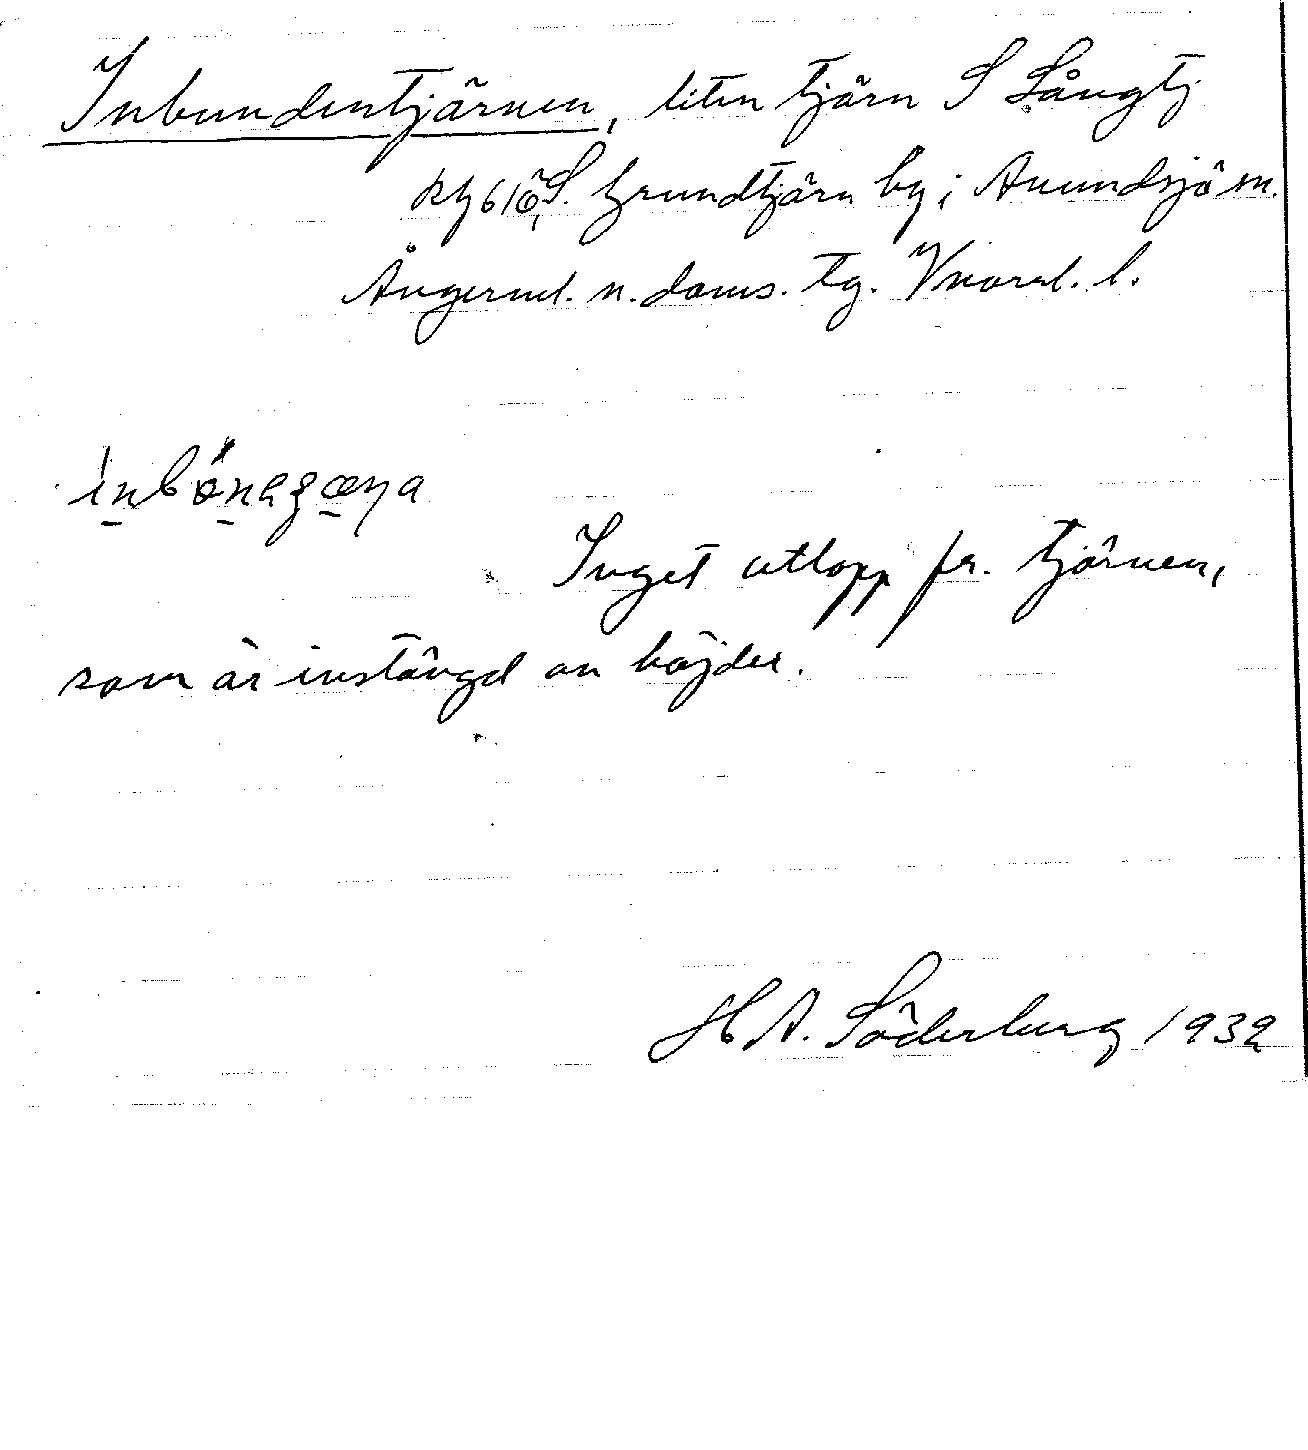 Inbundentjärnen, liten tjärn S Långtj
S. Grundtjärn by i Anundsjö sn.
Ångerml. n. doms. tg. Vnorrl. l.
Inget utlopp fr. tjärnen,
som är instängd av höjder.
H A. Söderberg 1932